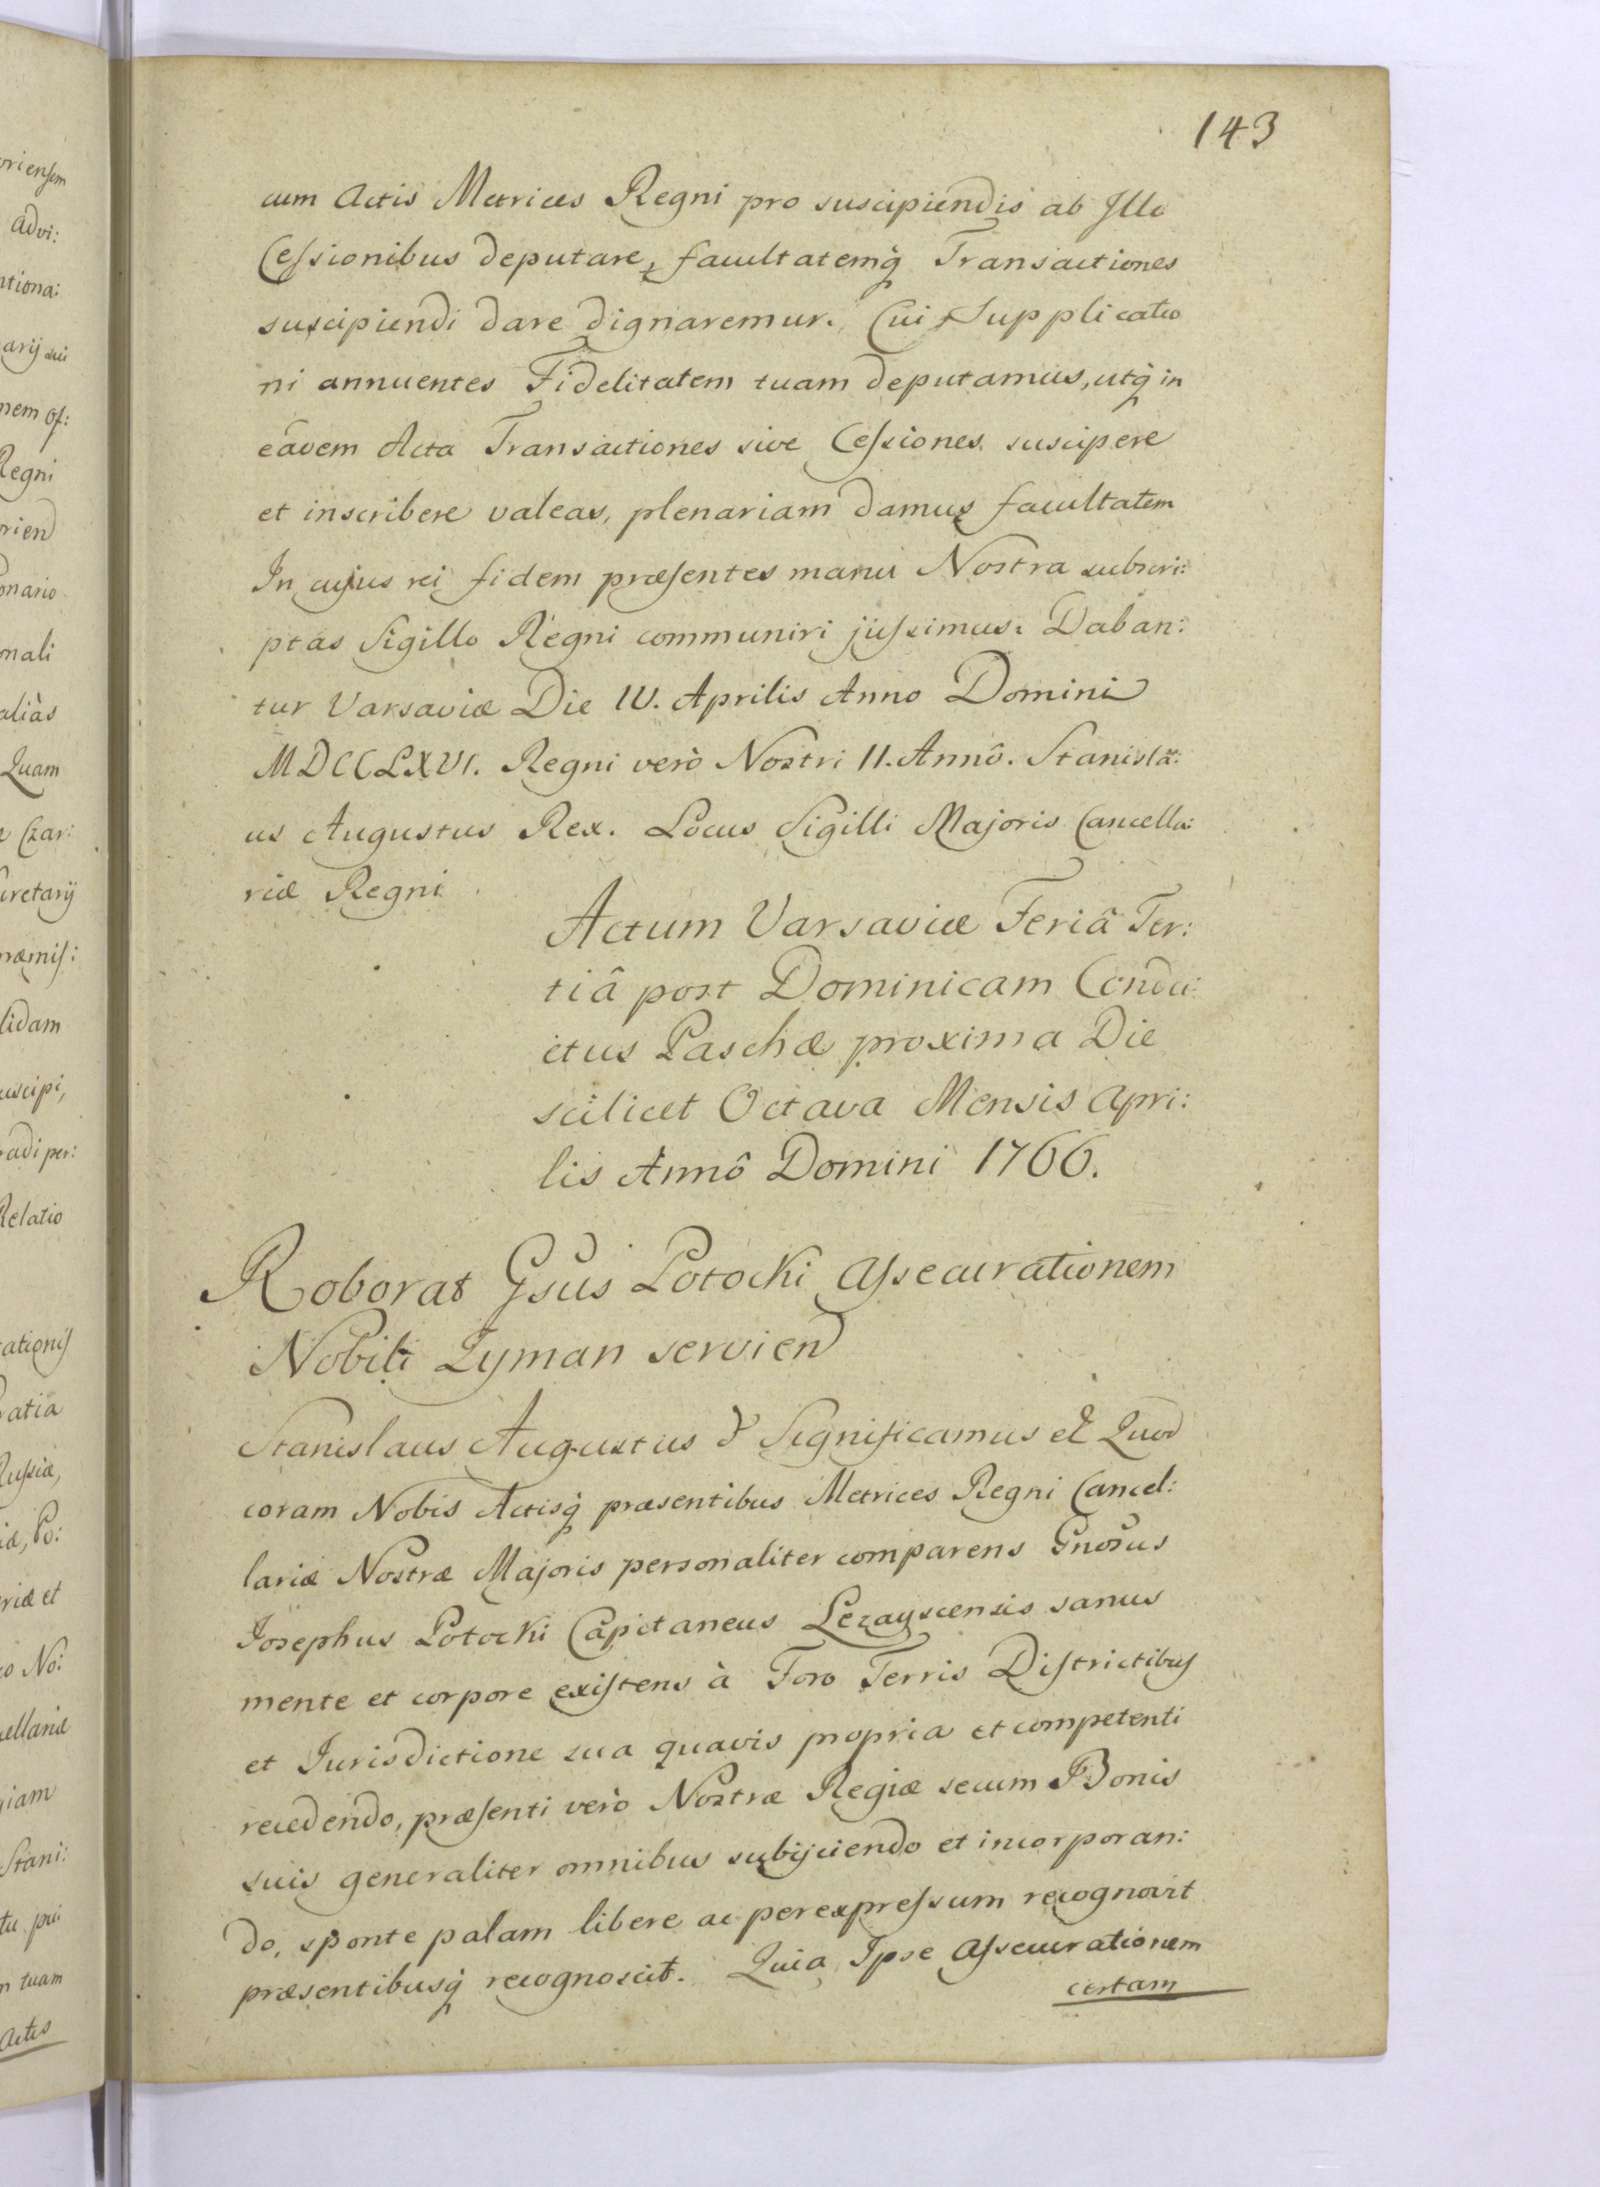 143
cum Actis Metrices Regni pro suscipiendis ab Illo
Cessionibus deputare, facultatemq́ Transactiones
suscipiendi dare dignaremur. Cui Supplicatio
ni annuentes Fidelitatem tuam deputamus, utq́ in
eadem Acta Transactiones sive Cessiones suscipere
et inscribere valeas, plenariam damus facultatem
In cujus rei fidem præsentes manu Nostra subscri:
ptas Sigillo Regni communiri jussimus. Daban:
tur Varsaviæ Die IV. Aprilis Anno Domini
MDCCLXVI. Regni verò Nostri II. Annô. Stanisla:
us Augustus Rex. Locus Sigilli Majoris Cancella:
riæ Regni
Actum Varsaviæ Feriâ Ter:
tiâ post Dominicam Condu:
ctus Paschæ proxima Die
scilicet Octava Mensis Apri:
lis Annô Domini 1766.
Roborat Gsus Potocki Assecurationem
Nobili Zyman servien
Stanislaus Augustus & Significamus et Quod
coram Nobis Actisq́ præsentibus Metrices Regni Cancel:
lariæ Nostræ Majoris personaliter comparens Gnosus
Josephus Potocki Capitaneus Lezayscensis sanus
mente et corpore existens à Foro Terris Districtibus
et Jurisdictione sua quavis propria et competenti
recedendo, præsenti verò Nostræ Regiæ secum Bonis
suis generaliter omnibus subijciendo et incorporan:
do, sponte palam libere ac per expressum recognovit
præsentibusq́ recognoscit. Quia Ipse Assecurationem
certam
oriensem
Advi:
ntiona:
arij sui
nem Of:
Regni
rien
onario
onali
aliàs
Quam
Czar:
cretarij
ræmis:
lidam
uscipi,
adi per:
Relatio
rationis
atia
Russiæ,
iæ, Po:
riæ et
o No:
cellariæ
giam
Stani:
tuam
Actis